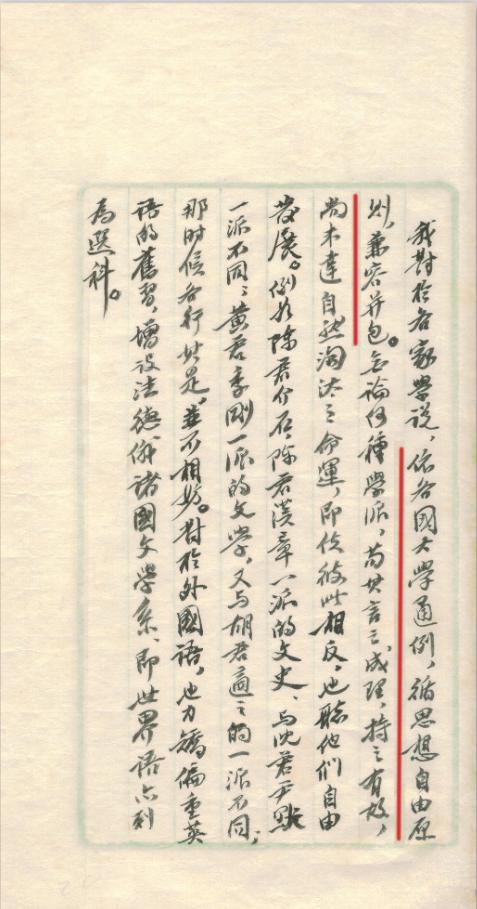 我對於各家學說，依各國大學通例，循思想自由原
則，兼容并包。無論何種學派，苟其言之成理，持之有故，
尚未達自然淘汰之命運，即使彼此相反，也聽他們自由
發展。例如陳君介石、陳君漢章一派的文史，与沈君尹默
一派不同；黃君季剛一派的文学，又与胡君適之的一派不同；
那时候各行其是，並不相妨。對於外國語，也力矯偏重英
語的舊習，增设法德俄諸國文学系，即世界語亦列
為選科。